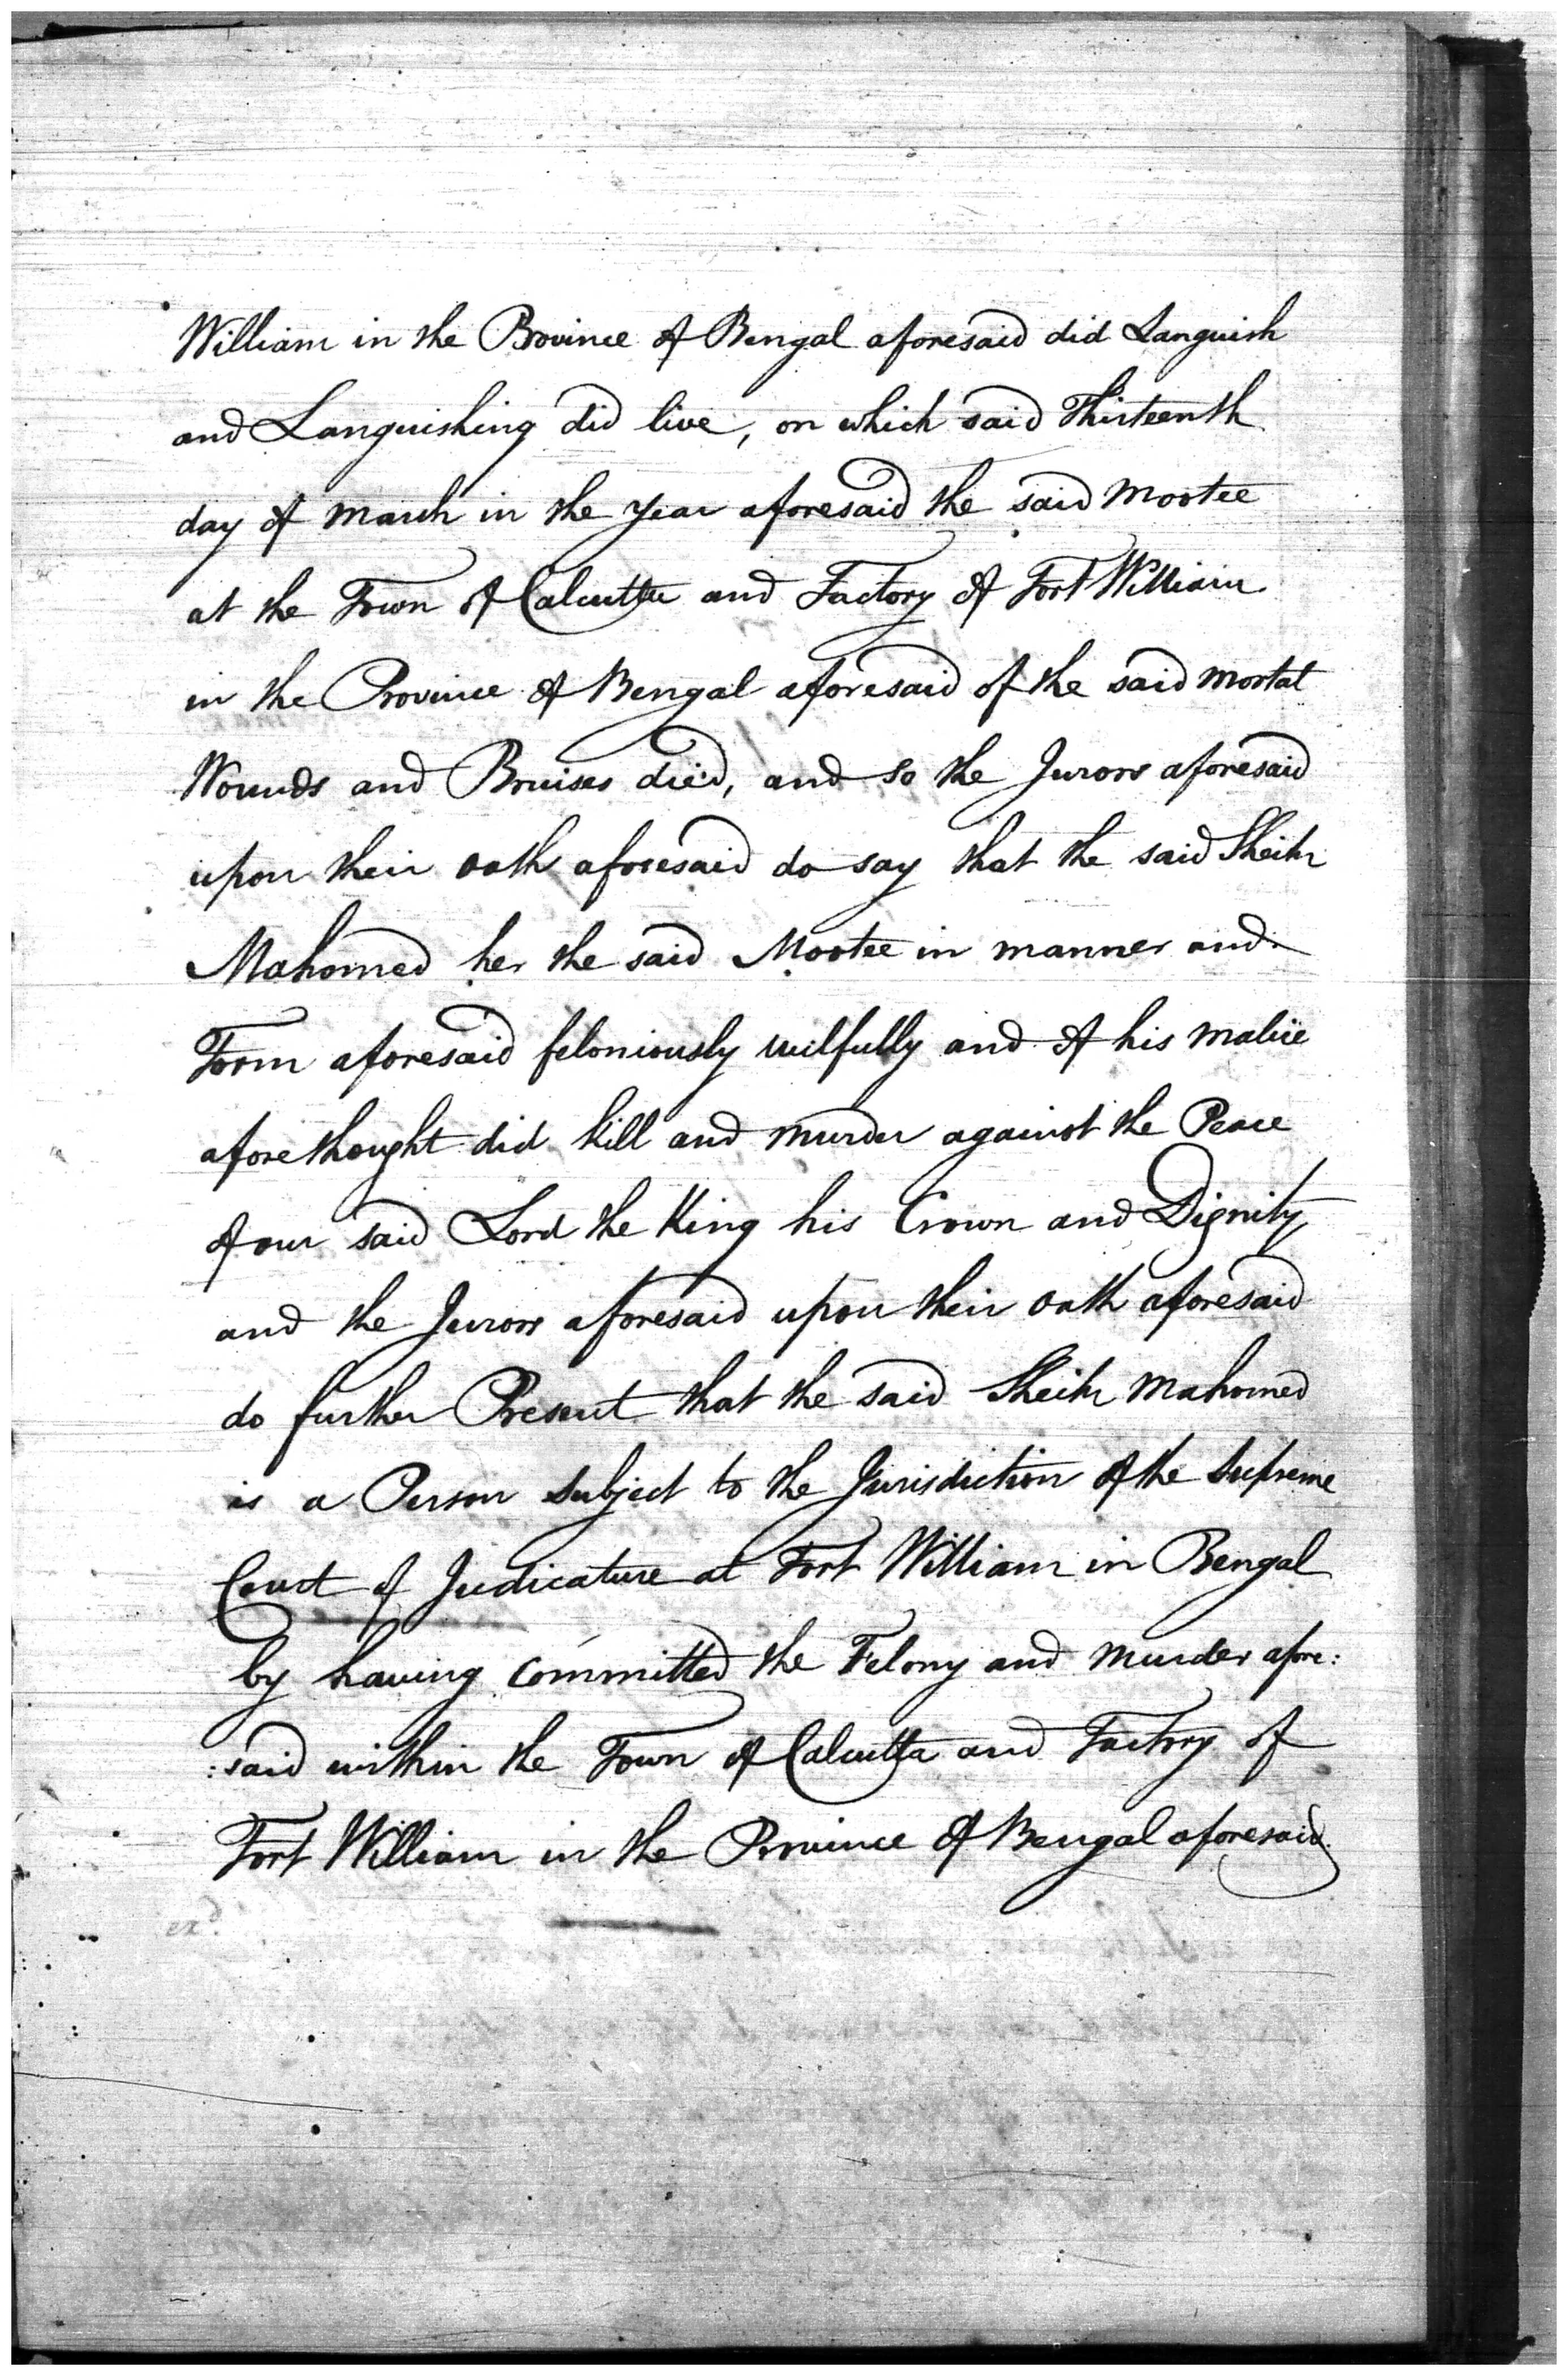 William in the Province of Bengal aforesaid did Languish
and Languishing did live, on which said Thirteenth
day of March in the Year aforesaid the said Mootee
at the Town of Calcutta and Factory of Fort William
in the Province of Bengal aforesaid of the said mortal
Wounds and Bruises died, and so the Jurors aforesaid
upon their oath aforesaid do say that the said Sheik
Mahomed her the said Mootee in manner and
Form aforesaid feloniously wilfully and of his malice
aforethought did kill and murder against the Peace
of our said Lord the King his Crown and Dignity
and the Jurors aforesaid upon their oath aforesaid
do further Present that the said Sheik Mahomed
is a Person subject to the Jurisdiction of the Supreme
Court of Judicature at Fort William in Bengal
by having committed the Felony and Murder afore:
:said within the Town of Calcutta and Factory of
Fort William in the Province of Bengal aforesaid.
exd.